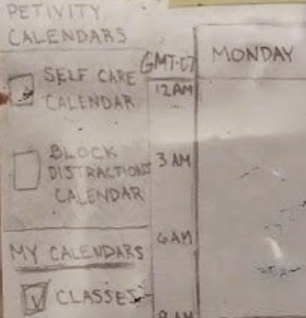 PETIVITY
CALENDARS
SELF CARE
CALENDAR
BLOCK
DISTRACTIONS
CALENDAR
MY CALENDARS
CLASSES
GMT-07
12 AM
3 AM
6 AM
9 AM
MONDAY